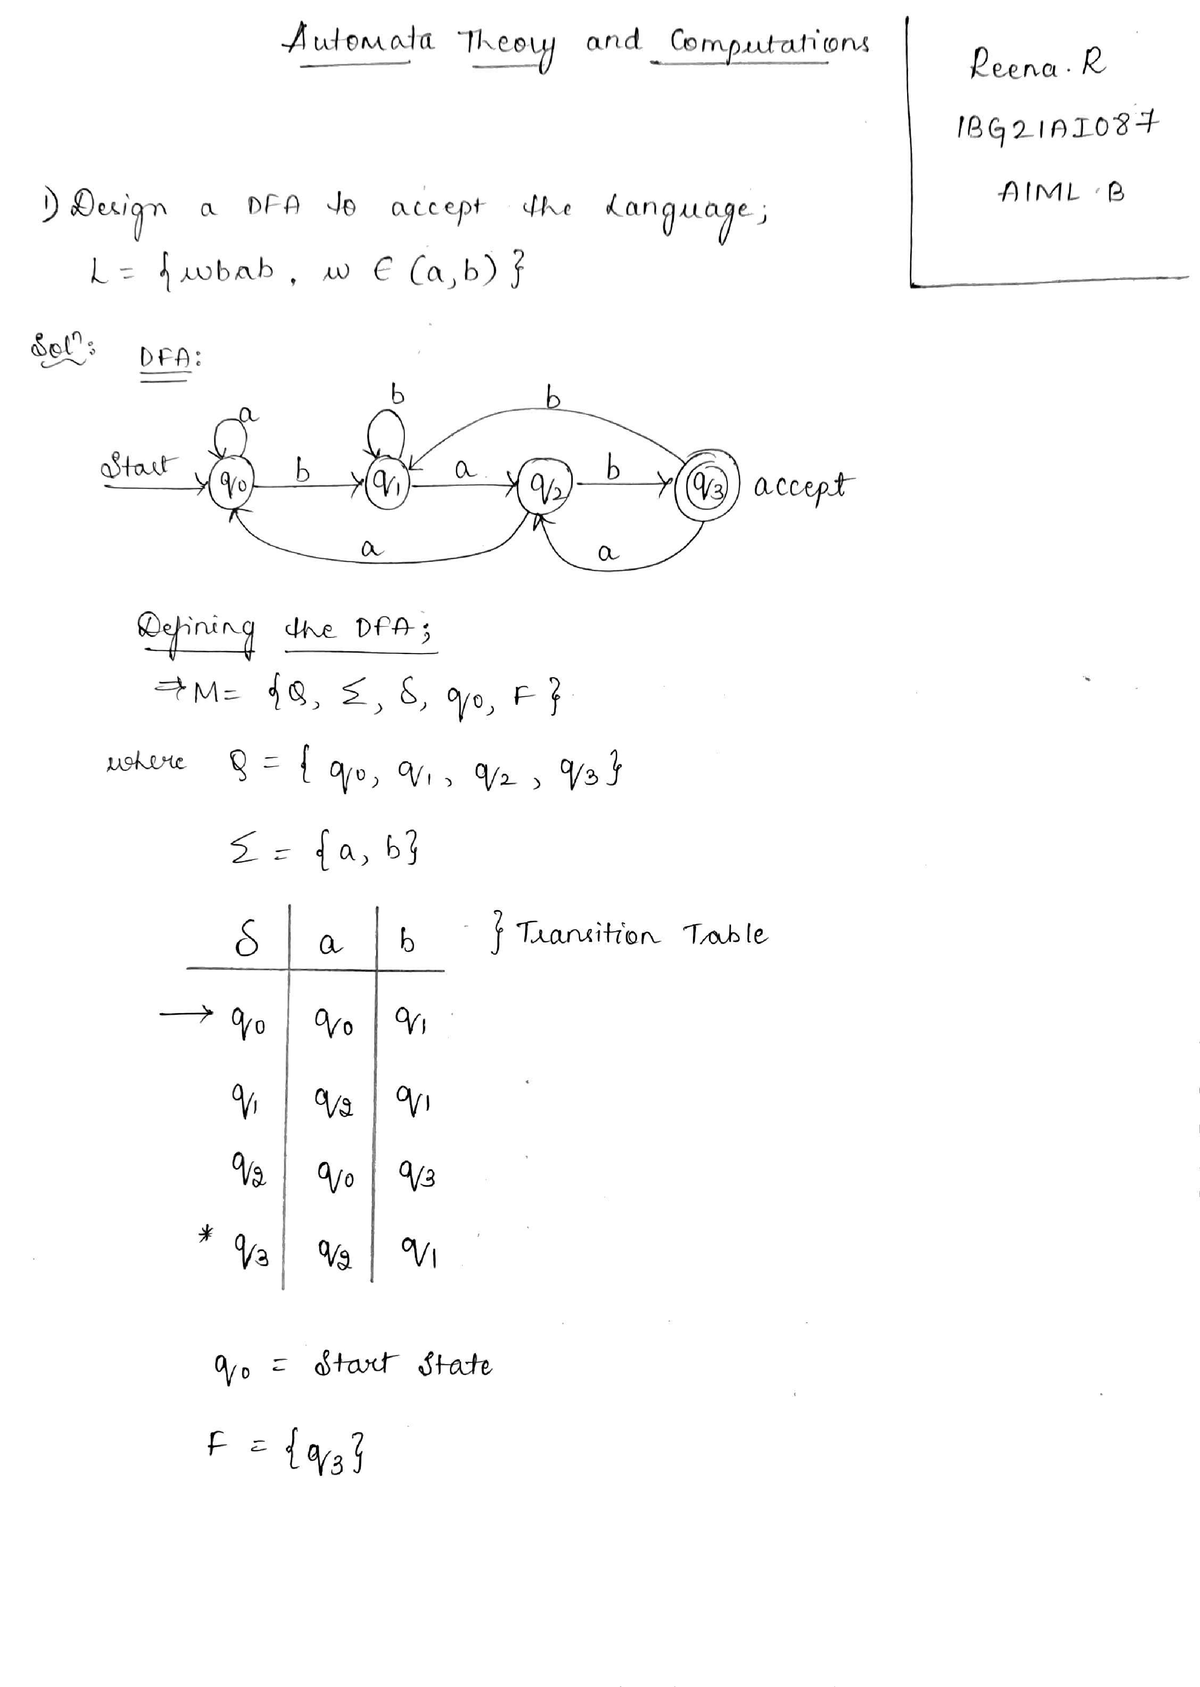 Automata Theory and Computations
Reena. R
1BG21AI087
AIML B
1) Design a DFA to accept the Language;
L = {wbab, w ∈ (a,b)}
Solⁿ: DFA:
a
b
b
Start q0 b q1 a q2 b q3 accept
a
a
Defining the DFA;
⇒ M = {Q, Σ, δ, q0, F}
where Q = {q0, q1, q2, q3}
Σ = {a, b}
δ a b } Transition Table
→ q0 q0 q1
q1 q2 q1
q2 q0 q3
* q3 q2 q1
q0 = Start State
F = {q3}